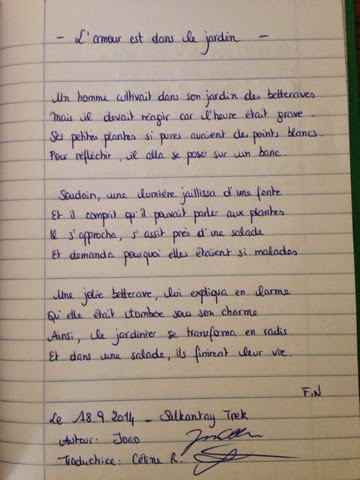 - L'amour est dans le jardin -
Un homme cultivait dans son jardin des betteraves
Mais il devait réagir car l'heure était grave.
Ses petites plantes si pures avaient des points blancs.
Pour réfléchir, il alla se poser sur un banc.
Soudain, une lumière jaillissa d'une fente
Et il comprit qu'il pouvait parler aux plantes
Il s'approcha, s'assit près d'une salade
Et demanda pourquoi elles étaient si malades
Une jolie betterave, lui expliqua en larme
Qu'elle était tombée sous son charme
Ainsi, le jardinier se transforma en radis
Et dans une salade, ils finirent leur vie.
F.N
Le 18.9.2014 - Salkantay Trek
Auteur: Joao
Traductrice: Céline R.